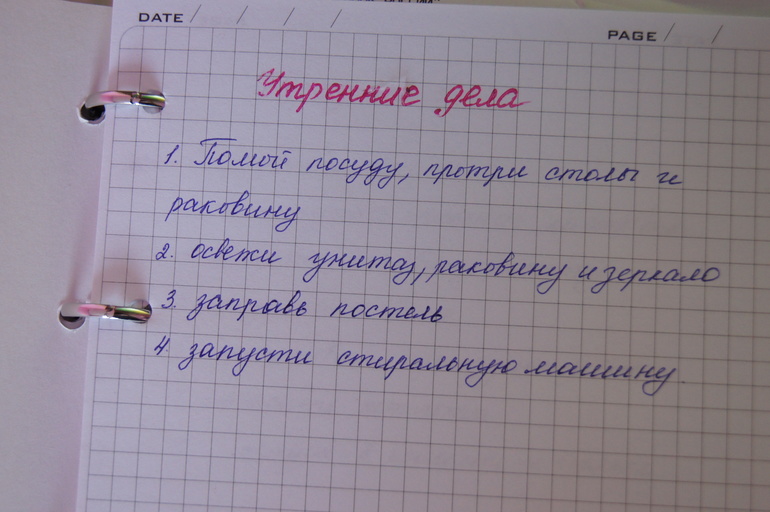 DATE / / / /
PAGE / /
Утренние дела
1. Помой посуду, протри столы и
раковину
2. освежи унитаз, раковину и зеркало
3. заправь постель
4. запусти стиральную машину.